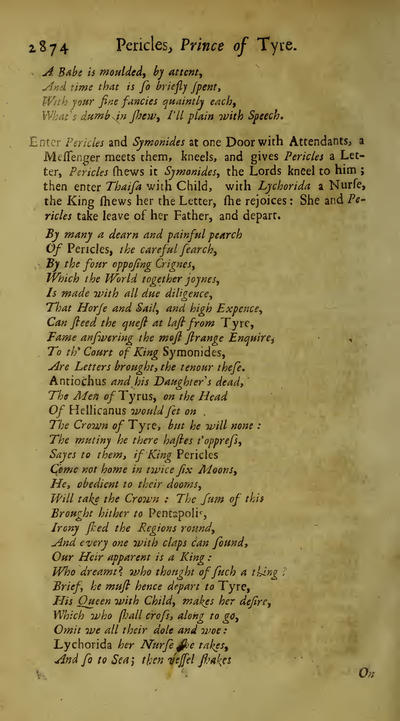 2874 Pericles, Prince of Tyre.
A Babe is moulded, by attent,
And time that is ſo briefly ſpent,
With your fine fancies quaintly each,
What's dumb in ſhew, I'll plain with Speech.
Enter Pericles and Symonides at one Door with Attendants, a
Meſſenger meets them, kneels, and gives Pericles a Let-
ter, Pericles ſhews it Symonides, the Lords kneel to him;
then enter Thaiſa with Child, with Lychorida a Nurſe,
the King ſhews her the Letter, ſhe rejoices: She and Pe-
ricles take leave of her Father, and depart.
By many a dearn and painful pearch
Of Pericles, the careful ſearch,
By the four oppoſing Crignes,
Which the World together joynes,
Is made with all due diligence,
That Horſe and Sail, and high Expence,
Can ſteed the queſt at laſt from Tyre,
Fame anſwering the moſt ſtrange Enquire,
To th' Court of King Symonides,
Are Letters brought, the tenour theſe.
Antiochus and his Daughter's dead,
The Men of Tyrus, on the Head
Of Hellicanus would ſet on
The Crown of Tyre, but he will none:
The mutiny he there haſtes t'oppreſs,
Sayes to them, if King Pericles
Come not home in twice ſix Moons,
He, obedient to their dooms,
Will take the Crown: The ſum of this
Brought hither to Pentapolis,
Irony ſteed the Regions round,
And every one with claps can ſound,
Our Heir apparent is a King:
Who dreamt? who thought of ſuch a thing?
Brief, he muſt hence depart to Tyre,
His Queen with Child, makes her deſire,
Which who ſhall croſs, along to go,
Omit we all their dole and woe:
Lychorida her Nurſe ſhe takes,
And ſo to Sea; then veſſel ſhakes
On